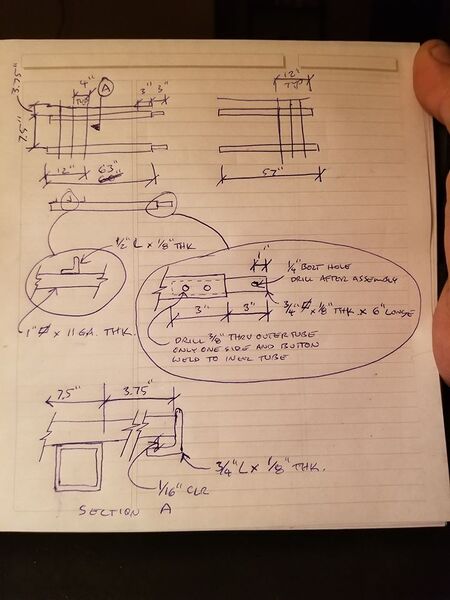 4"
TYP
A
3" 3"
3.75"
7.5"
12" 63"
12"
TYP
57"
1/2" L x 1/8" THK
1" ⌀ x 11 GA. THK.
1"
1/4" BOLT HOLE
DRILL AFTER ASSEMBLY
3" 3"
3/4" ⌀ x 1/8" THK x 6" LONG
DRILL 3/8" THRU OUTER TUBE
ONLY ONE SIDE AND BUTTON
WELD TO INNER TUBE
7.5" 3.75"
3/4" L x 1/8" THK.
1/16" CLR
SECTION A